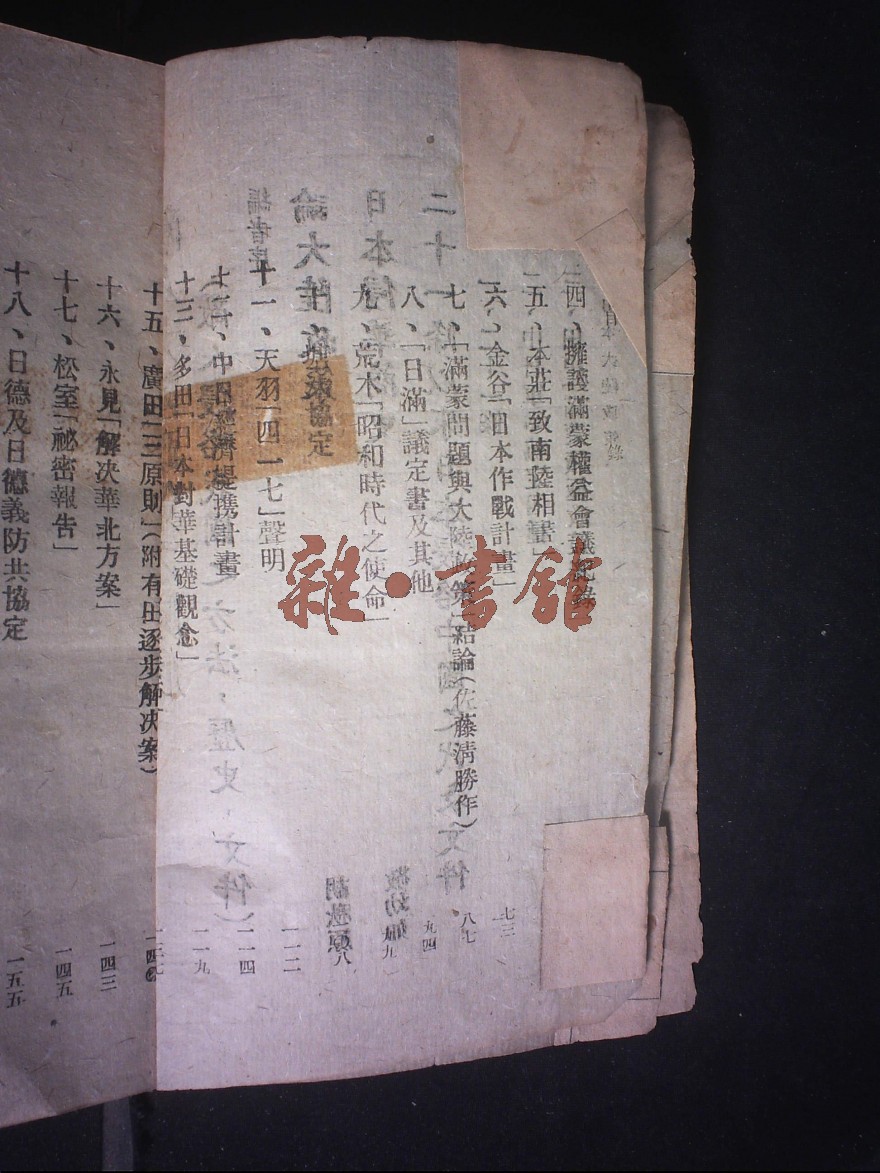 四、擁護滿蒙權益會議紀錄
五、本莊「致南陸相書」
六、金谷「日本作戰計畫」 七三
七、「滿蒙問題與大陸政策」結論(佐藤淸勝作) 八七
八、「日滿」議定書及其他 九四
九、荒木「昭和時代之使命」
協定
十一、天羽「四一七」聲明 一一二
十二、中日經濟提携計畫 一一四
十三、多田「日本對華基礎觀念」 一一九
十五、廣田「三原則」(附有田逐步解决案)
十六、永見「解决華北方案」 一四三
十七、松室「祕密報告」 一四五
十八、日德及日德義防共協定 一五五
雜·書館